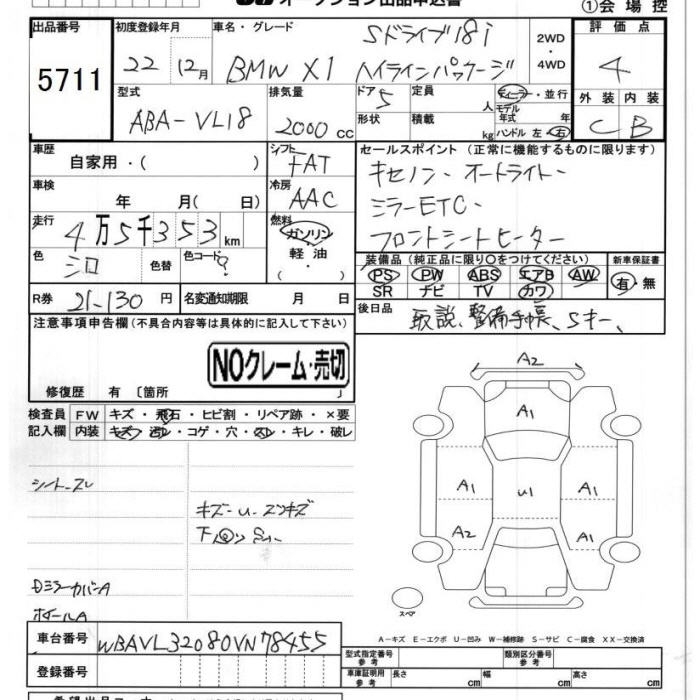 オークション出品申込書
①会場控
出品番号
5711
初度登録年月
22 12月
車名・グレード
Sドライブ18i
BMW X1 ハイラインパッケージ
2WD
・
4WD
評価点
4
型式
ABA-VL18
排気量
2000 cc
ドア 5
形状
定員 人
積載 kg
ディーラー・並行
モデル
年式 年
ハンドル 左・右
外装 内装
C B
車歴
自家用・( )
シフト
FAT
セールスポイント (正常に機能するものに限ります)
キセノン・オートライト・
ミラーETC・
フロントシートヒーター
車検
年 月( 日)
冷房
AAC
走行
4万5千353km
燃料
ガソリン
軽油
・( )
色
シロ
色替
色コード
装備品 (純正品に限り○をつけてください)
PS PW ABS エアB AW
SR ナビ TV カワ
新車保証書
有・無
R券 21-130円
名変通知期限 月 日
後日品
取説、整備手帳、Sキー、
注意事項申告欄(不具合内容等は具体的に記入して下さい)
NOクレーム・売切
修復歴 有〔箇所 〕
検査員 FW キズ・飛石・ヒビ割・リペア跡・×要
記入欄 内装 キズ・汚レ・コゲ・穴・スレ・キレ・破レ
シートスレ
キズ-U-スリキズ
Dミラーカバー A
ホイール A
A2
A1
A1
U1
A1
A2
A1
スペア
A-キズ E-エクボ U-凹み W-補修跡 S-サビ C-腐食 XX-交換済
車台番号
WBAVL32080VN78455
登録番号
型式指定番号
参考
類別区分番号
参考
車庫証明用
参考
長さ cm
幅 cm
高さ cm